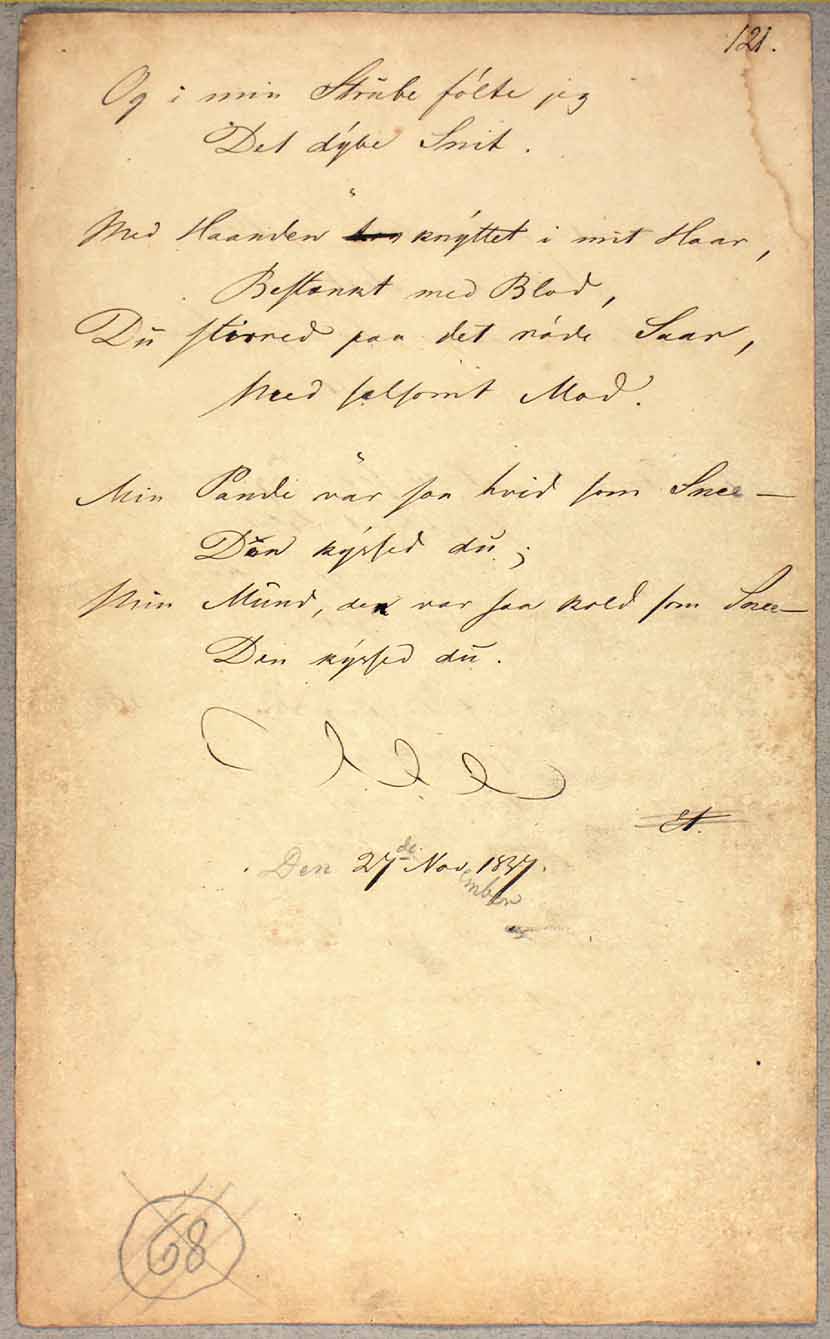 121.
Og i min Strube følte jeg
Det dybe Snit.
Med Haanden knyttet i mit Haar,
Bestænkt med Blod,
Du stirred paa det røde Saar,
Med sælsomt Mod.
Min Pande var saa hvid som Snee—
Den kyssed du;
Min Mund, den var saa kold som Snee—
Den kyssed du.
Den 27de Nov. 1837.
ember
68